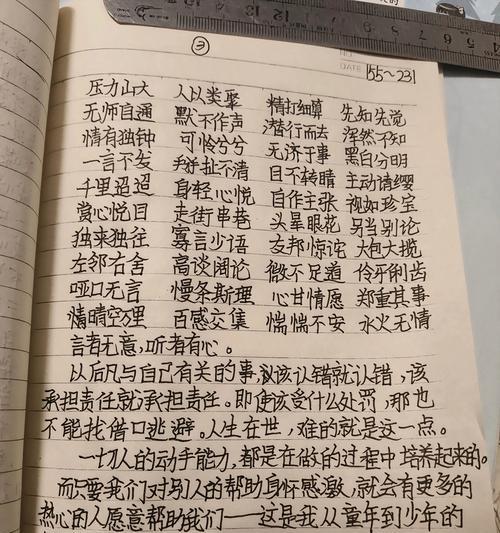 ③
DATE 155~231
压力山大 人以类聚 精打细算 先知先觉
无师自通 默不作声 潜行而去 浑然不知
情有独钟 可怜兮兮 无济于事 黑白分明
一言不发 拉扯不清 目不转睛 主动请缨
千里迢迢 身轻心悦 自作主张 视如珍宝
赏心悦目 走街串巷 头晕眼花 另当别论
独来独往 寡言少语 友邦惊诧 大包大揽
左邻右舍 高谈阔论 微不足道 伶牙俐齿
哑口无言 慢条斯理 心甘情愿 郑重其事
晴空万里 百感交集 惴惴不安 水火无情
言者无意,听者有心。
以后凡与自己有关的事,该认错就认错,该
承担责任就承担责任。即使该受什么处罚,那也
不能找借口逃避。人生在世,难的就是这一点。
一切人的动手能力,都是在做的过程中培养起来的。
而只要我们对别人的帮助身怀感激,就会有更多的
热心的人愿意帮助我们——这是我从童年到少年的